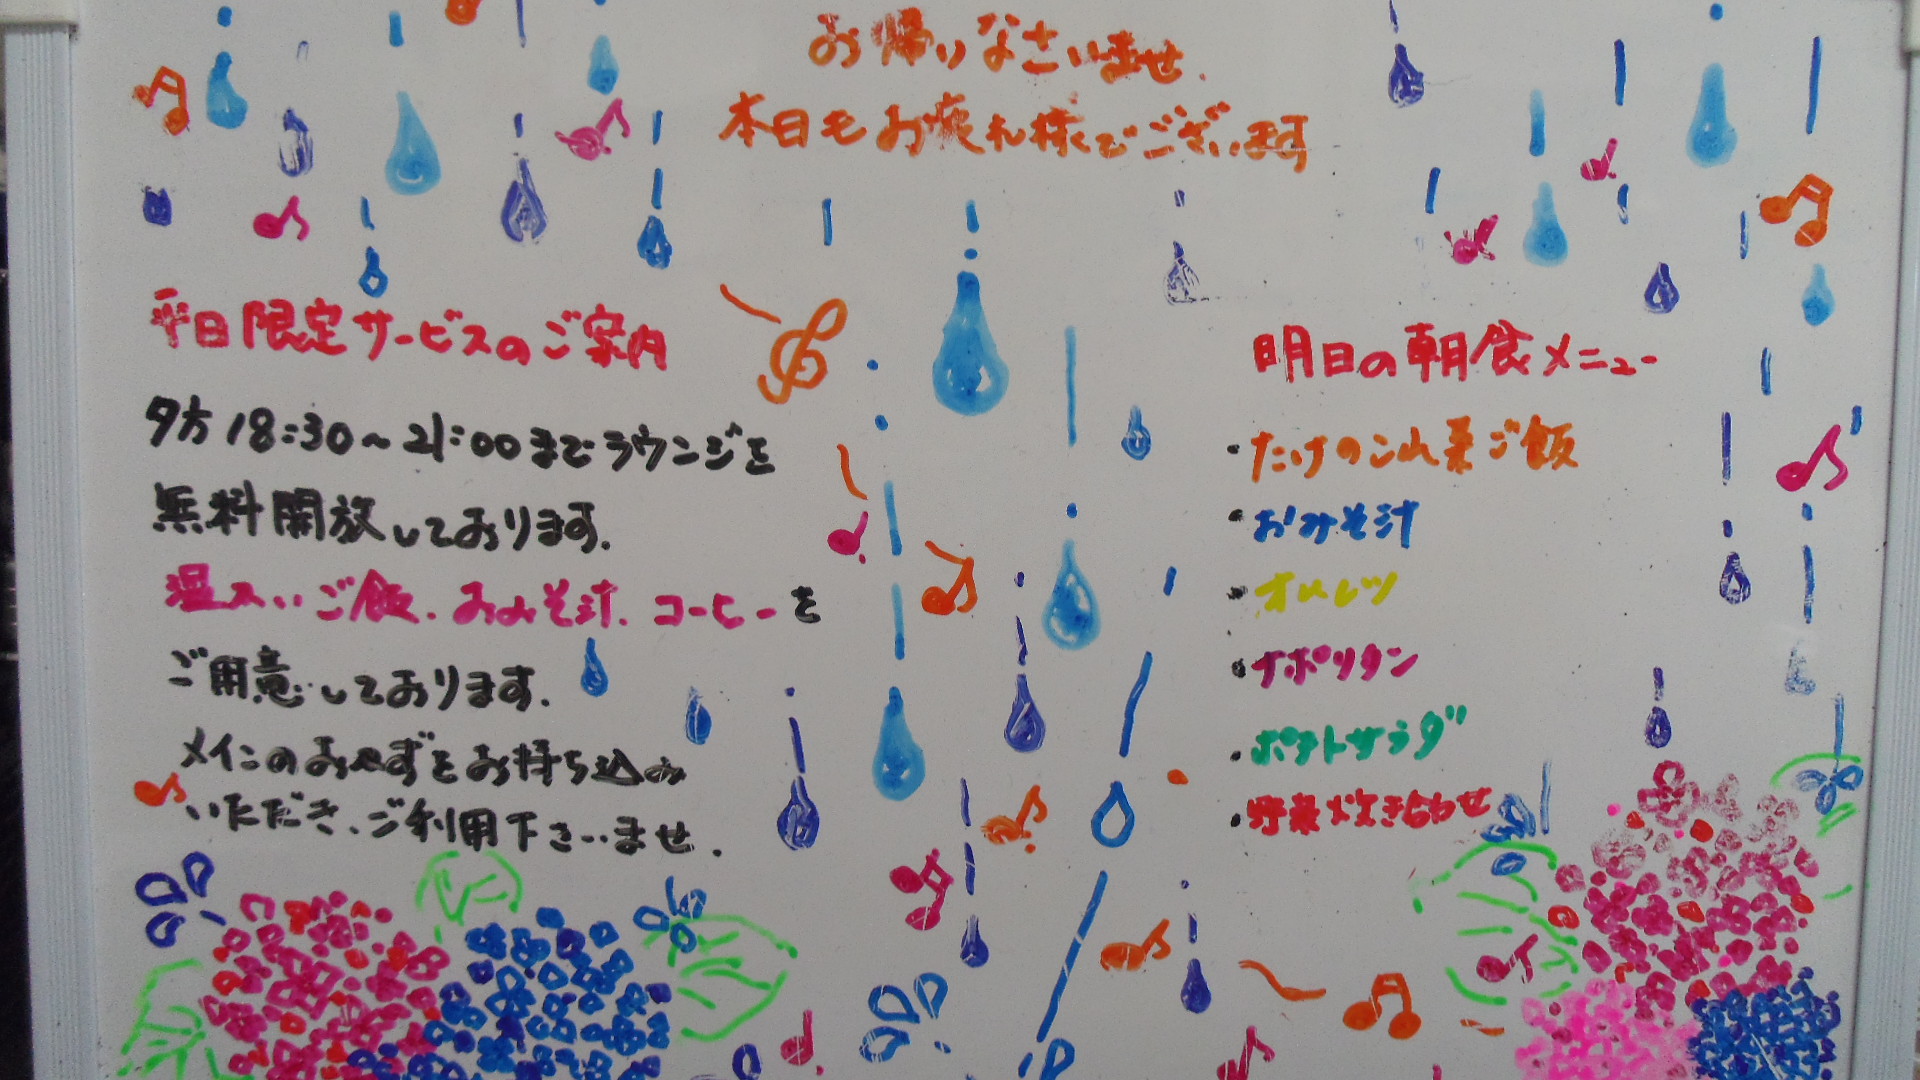 お帰りなさいませ.
本日もお疲れ様でございます
平日限定サービスのご案内
夕方18:30～21:00までラウンジを
無料開放しております.
温かいご飯.おみそ汁.コーヒーを
ご用意しております.
メインのおかずをお持ち込み
いただき、ご利用下さいませ.
明日の朝食メニュー
・たけのこ山菜ご飯
・おみそ汁
・オムレツ
・ナポリタン
・ポテトサラダ
・野菜炊き合わせ